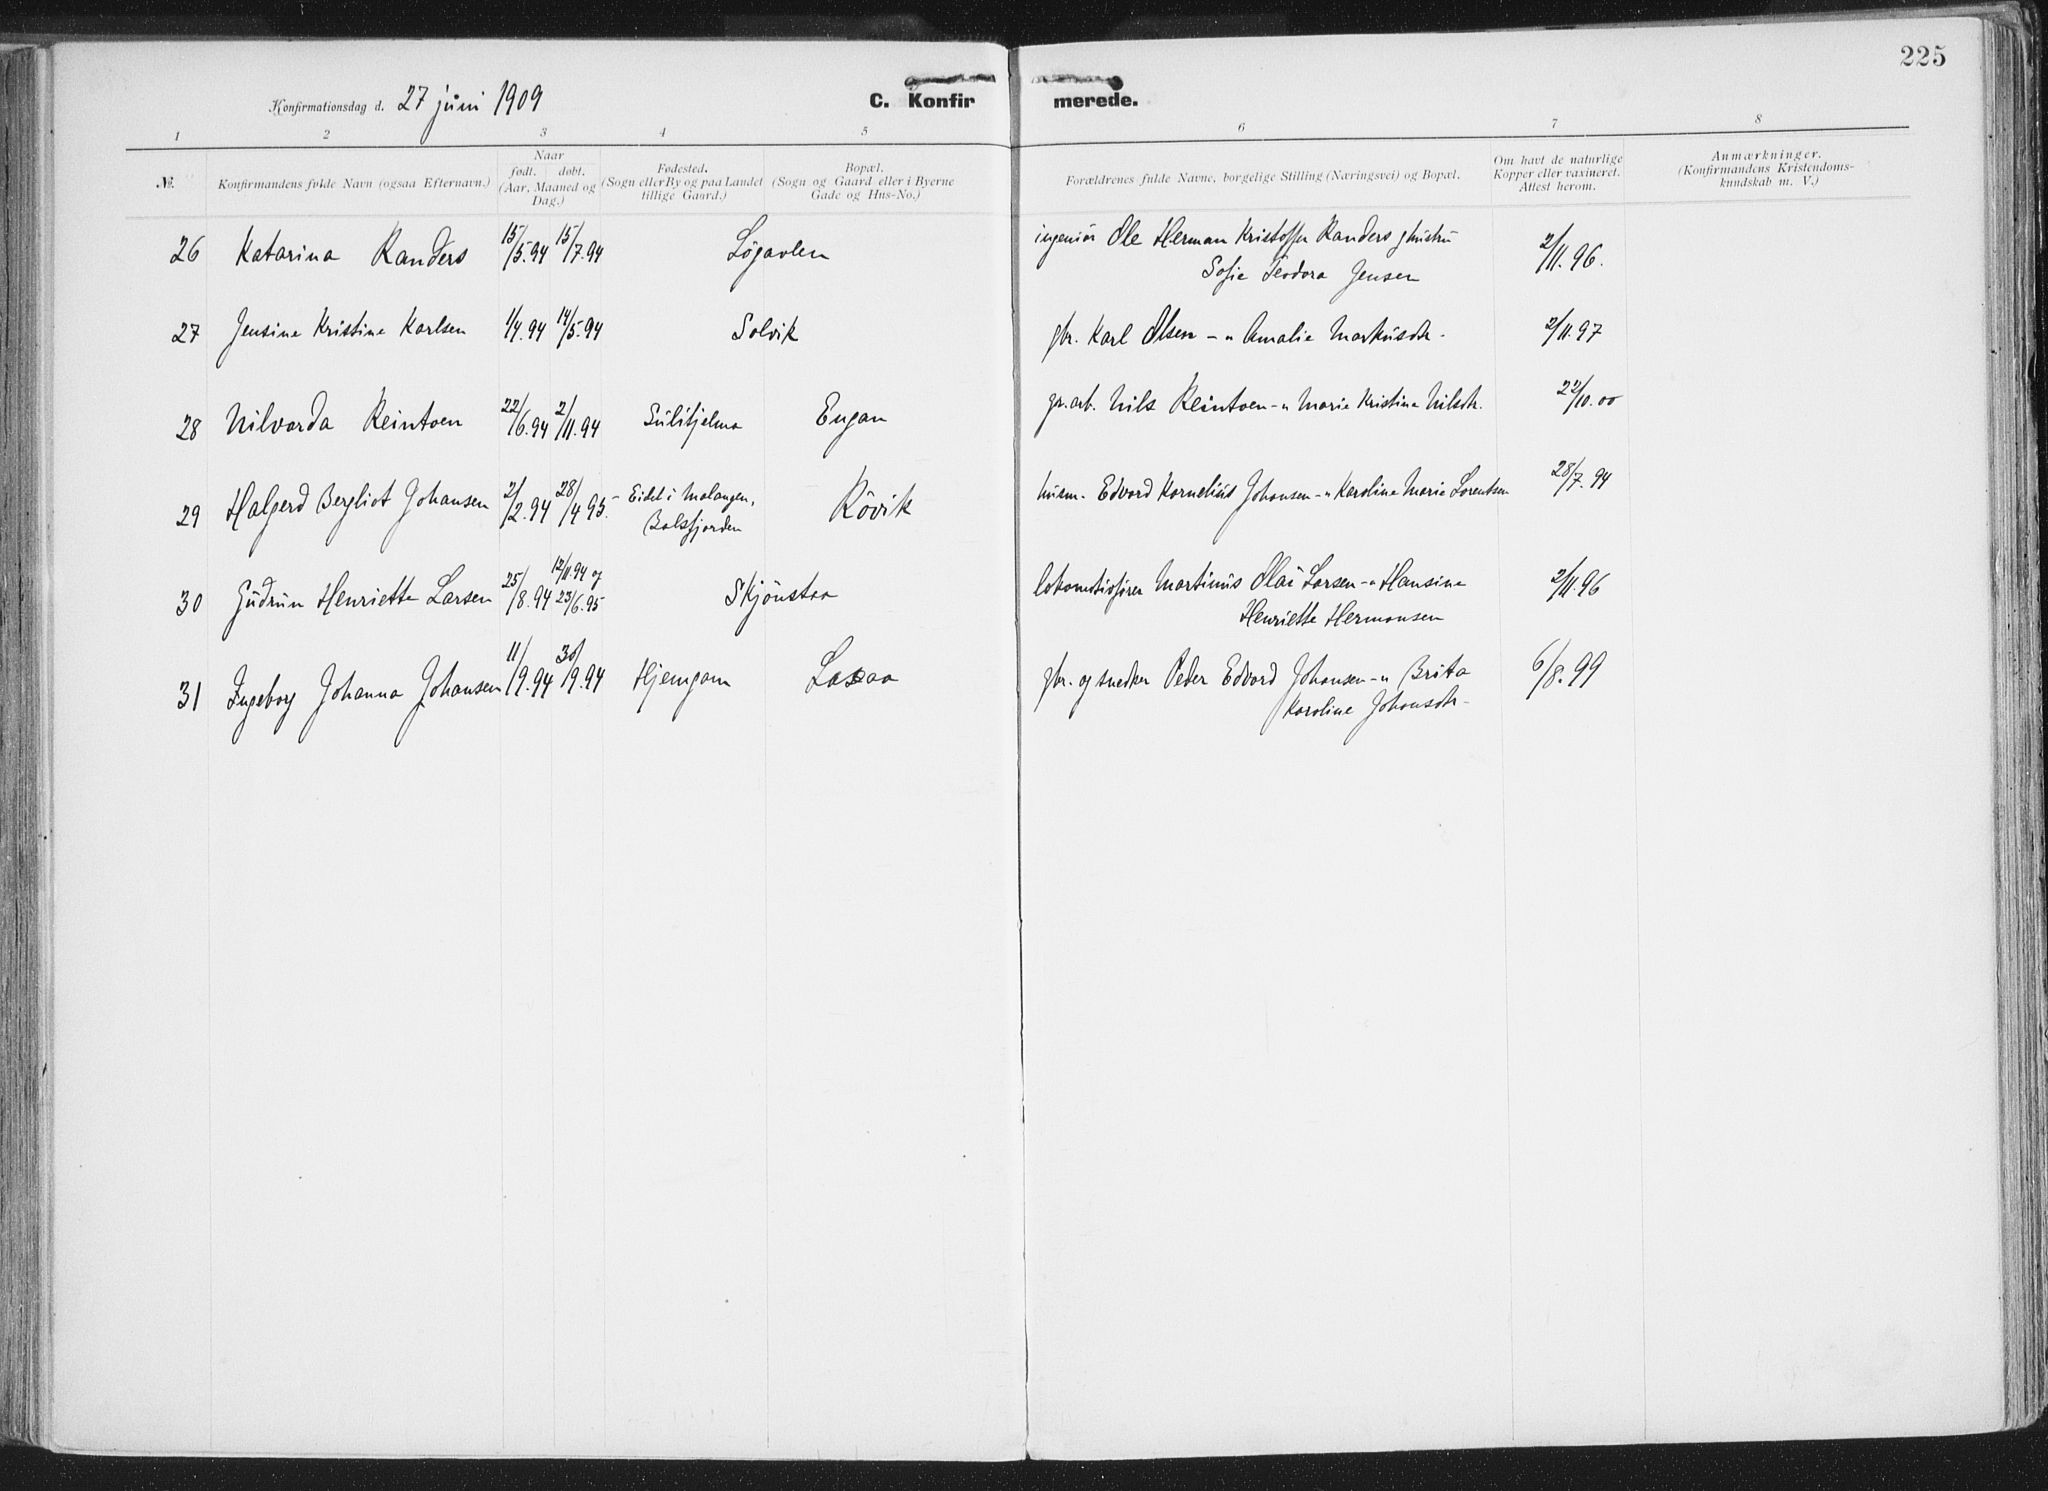 225
Konfirmationsdag d. 27 juni 1909
C. Konfirmerede.
1 2 3 4 5 6 7 8
№.
Konfirmandens fulde Navn (ogsaa Efternavn.)
Naar
født. døbt.
(Aar, Maaned og Dag.)
Fødested.
(Sogn eller By og paa Landet tillige Gaard.)
Bopæl.
(Sogn og Gaard eller i Byerne Gade og Hus-No.)
Forældrenes fulde Navne, borgelige Stilling (Næringsvei) og Bopæl.
Om havt de naturlige Kopper eller vaxineret. Attest herom.
Anmærkninger.
(Konfirmandens Kristendoms-kundskab m. V.)
26 Katarina Randers 15/5.94 15/7.94 Lögavlen ingeniör Ole Herman Kristoffer Randers hustru 2/11.96.
Sofie Teodora Jensen
27 Jensine Kristine Karlsen 1/4.94 14/5.94 Solvik gbr. Karl Olsen -" Amalie Markusdtr. 2/11.97
28 Nilvarda Reintoen 22/6.94 2/11.94 Sulitjelma Engan gr.arb. Nils Reintoen -" Marie Kristine Nilsdtr. 22/10.00
29 Halgerd Bergliot Johansen 2/2.94 28/4.95. Eidet i Malangen, Rövik husm. Edvard Kornelius Johansen -" Karoline Marie Lorentsen 28/7.94
Balsfjorden
30 Gudrun Henriette Larsen 25/8.94 12/11.94 og 23/6.95 Skjönstaa lokomotivfører Martinus Olai Larsen -" Hansine 2/11.96
Henriette Hermansen
31 Ingeborg Johanna Johansen 11/9.94 30/9.94 Hjemgam Laxaa gbr. og snedker Peder Edvard Johansen -" Brita 6/8.99
Karoline Johansdtr.